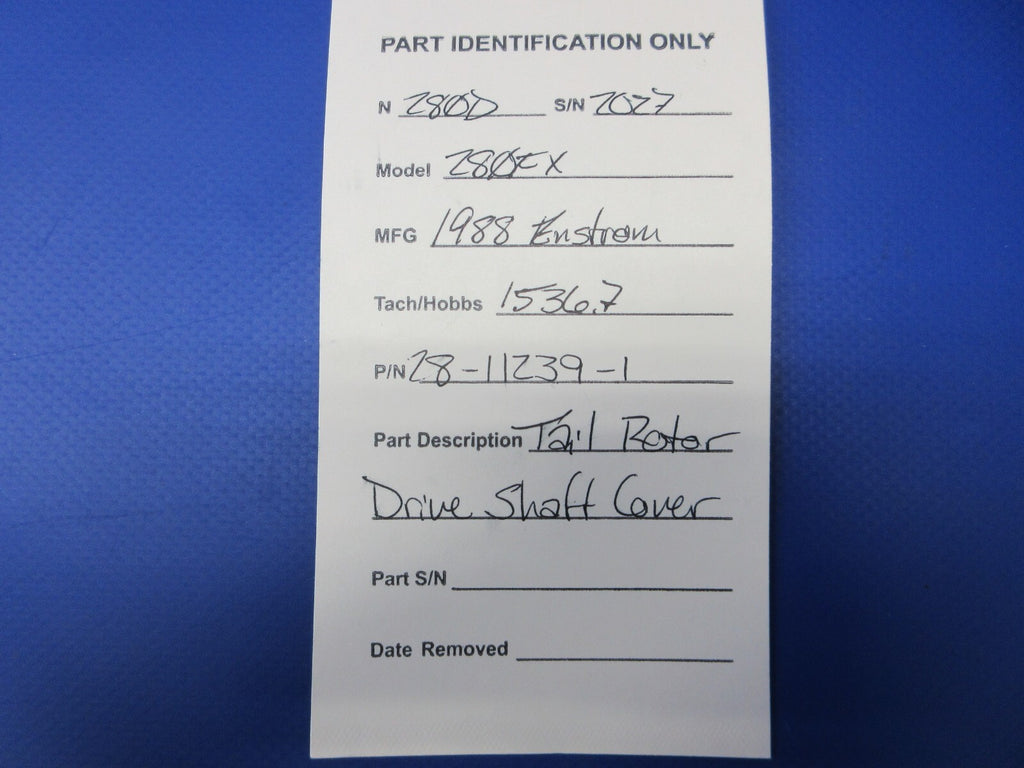 PART IDENTIFICATION ONLY
N 280D S/N 2027
Model 280FX
MFG 1988 Enstrom
Tach/Hobbs 1536.7
P/N 28-11239-1
Part Description Tail Rotor
Drive Shaft Cover
Part S/N
Date Removed